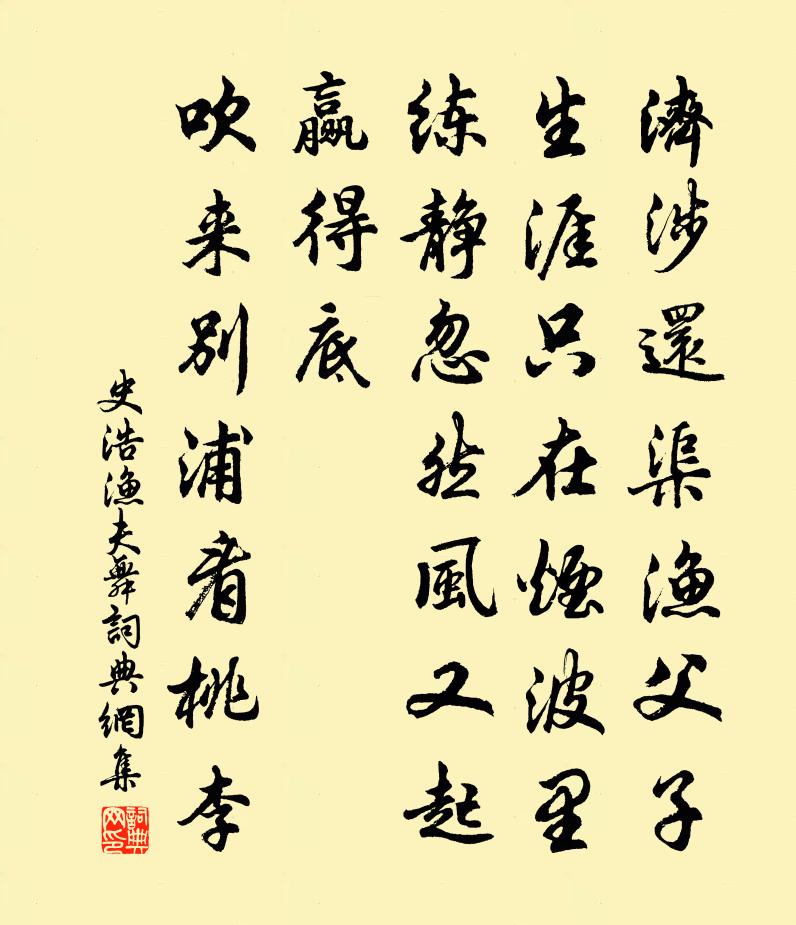 濟涉還渠漁父子
生涯只在煙波里
练静忽然風又起
贏得底
吹来别浦看桃李
史浩漁夫舞詞典網集
詞典网印